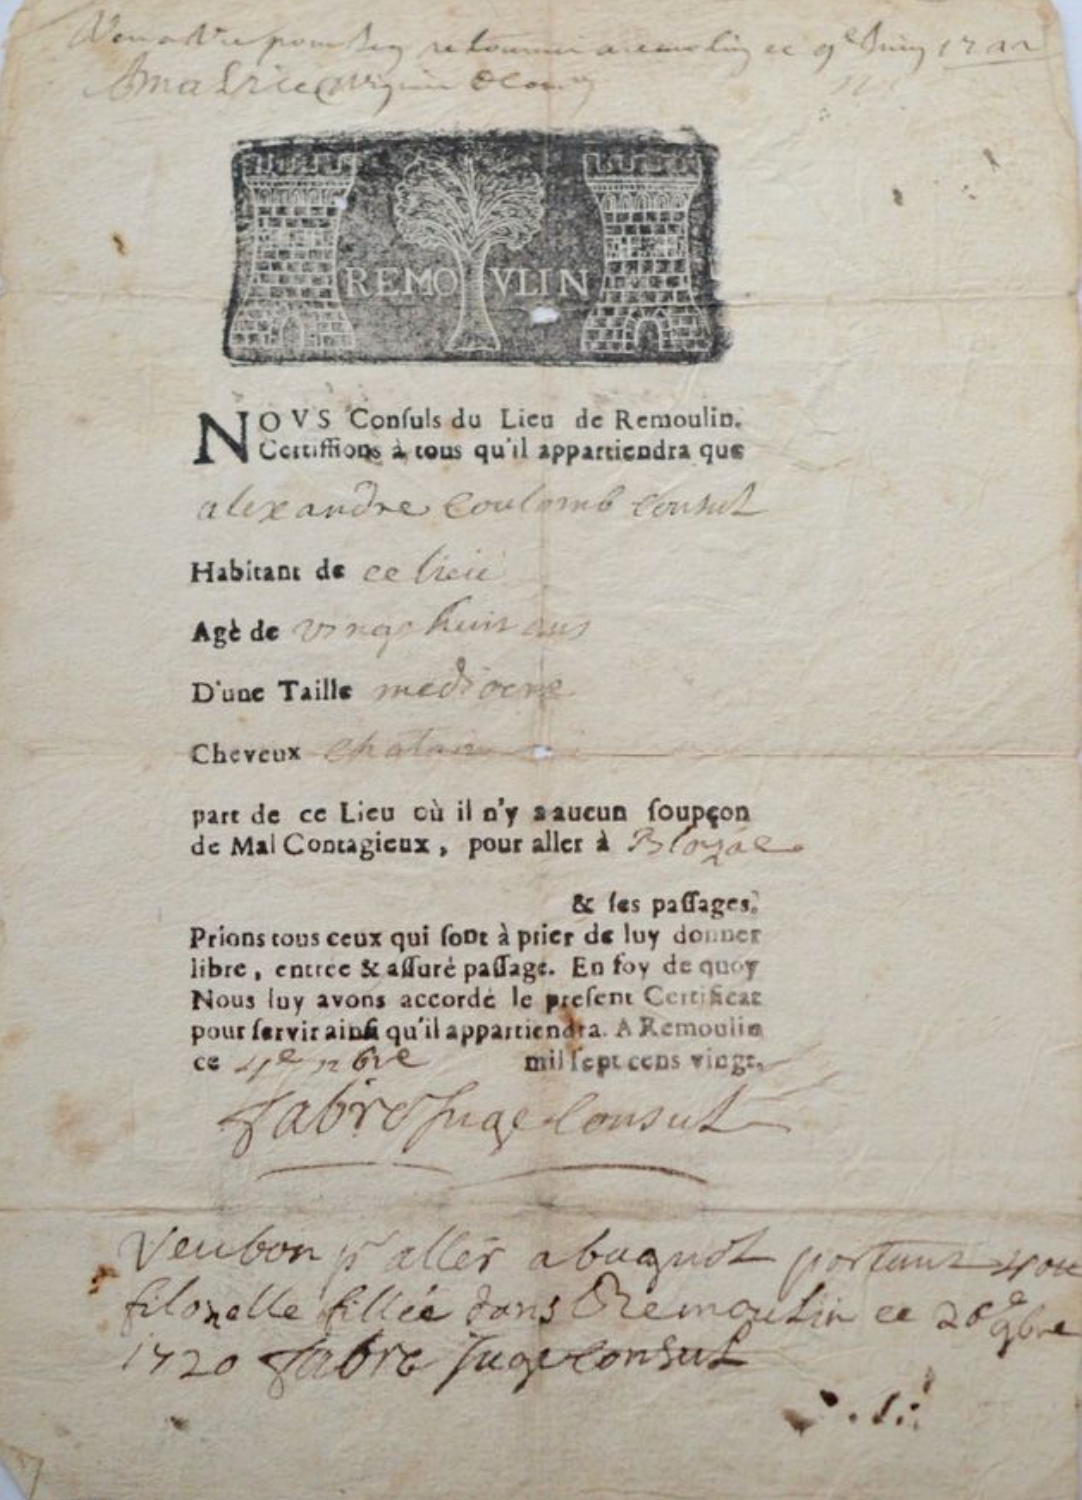 retourner a remoulin ce 9e Juin 17
REMOVLIN
NOVS Conſuls du Lieu de Remoulin.
Certiffions à tous qu'il appartiendra que
alexandre Coulomb Consul
Habitant de ce lieu
Agè de vingt huit ans
D'une Taille mediocre
Cheveux chatain
part de ce Lieu où il n'y a aucun ſoupçon
de Mal Contagieux, pour aller à Blozac
& ſes paſſages.
Prions tous ceux qui ſont à prier de luy donner
libre, entrée & aſſuré paſſage. En foy de quoy
Nous luy avons accordé le preſent Certificat
pour ſervir ainſi qu'il appartiendra. A Remoulin
ce 4e 9bre mil ſept cens vingt.
Fabre Juge Consul
Veu bon pr aller a portant
filozelle fillée dans Remoulin ce 26e 9bre
1720 Fabre Juge Consul